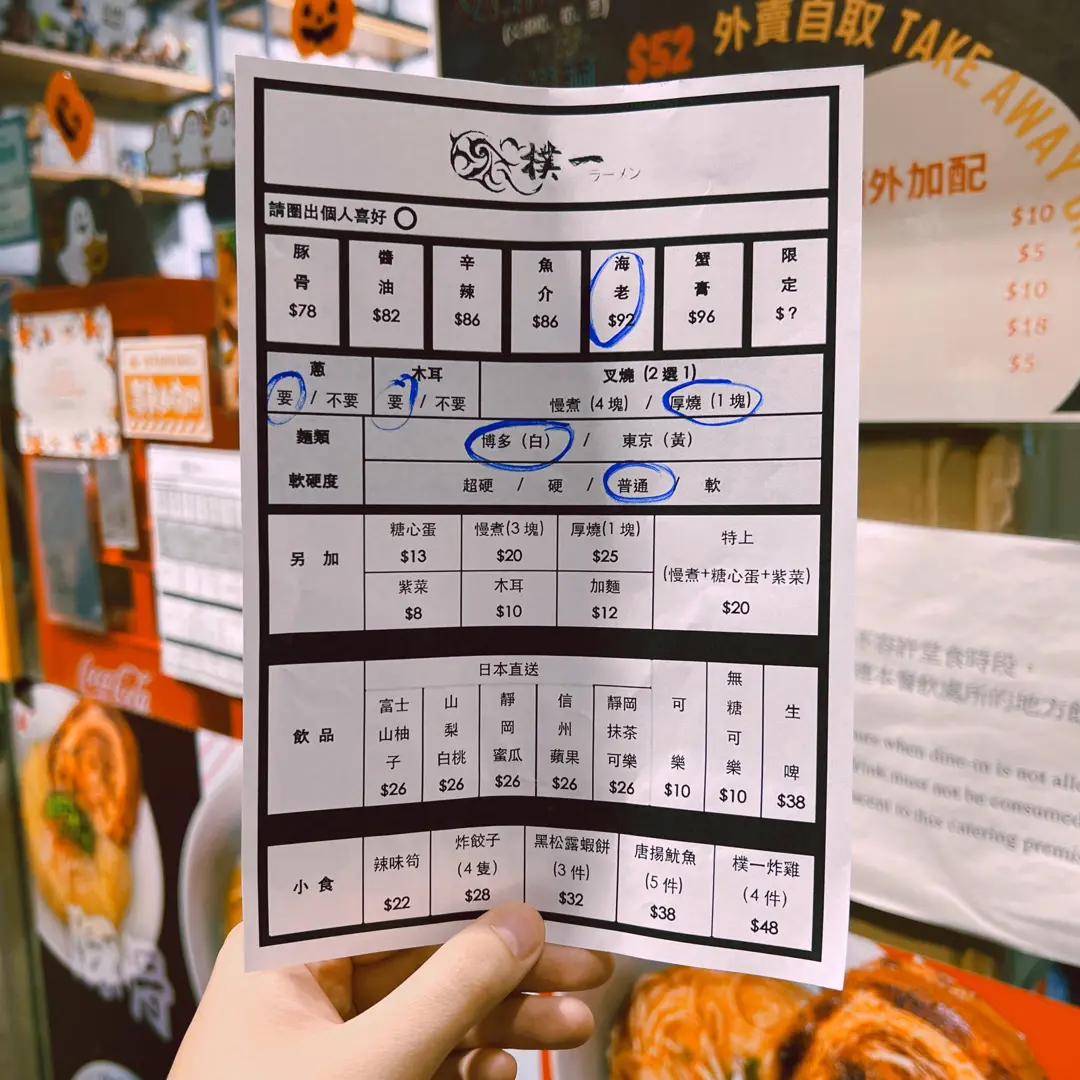 $52
外賣自取 TAKE AWAY
外加配
$10
$5
$10
$18
$5
樸一
ラーメン
請圈出個人喜好 ○
豚骨 $78
醬油 $82
辛辣 $86
魚介 $86
海老 $92
蟹膏 $96
限定 $?
蔥
要 / 不要
木耳
要 / 不要
叉燒 (2選1)
慢煮 (4塊) / 厚燒 (1塊)
麵類
博多 (白) / 東京 (黃)
軟硬度
超硬 / 硬 / 普通 / 軟
另加
糖心蛋
$13
慢煮(3塊)
$20
厚燒(1塊)
$25
紫菜
$8
木耳
$10
加麵
$12
特上
(慢煮+糖心蛋+紫菜)
$20
飲品
日本直送
富士山柚子 $26
山梨白桃 $26
靜岡蜜瓜 $26
信州蘋果 $26
靜岡抹茶可樂 $26
可樂 $10
無糖可樂 $10
生啤 $38
小食
辣味筍
$22
炸餃子
(4隻)
$28
黑松露蝦餅
(3件)
$32
唐揚魷魚
(5件)
$38
樸一炸雞
(4件)
$48
Coca-Cola
不容許堂食時段，
when dine-in is not
must not be consumed
to this catering